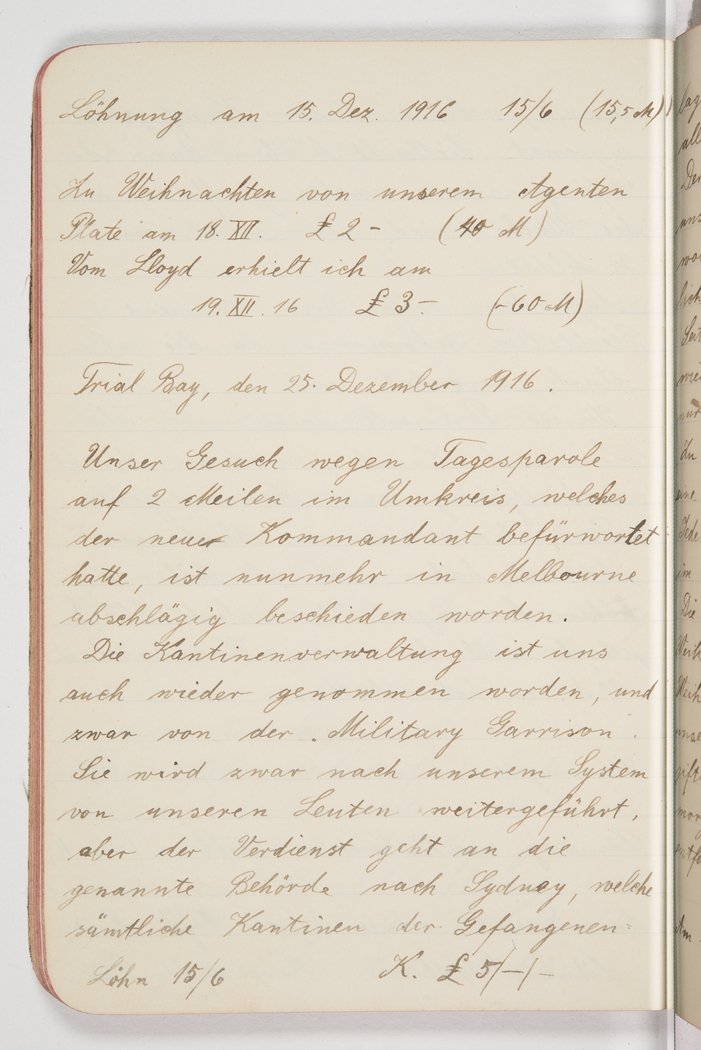 Löhnung am 15. Dez. 1916 15/6 (15,5 M)
Zu Weihnachten von unserem Agenten
Plate am 18. XII. £ 2 - (40 M)
Vom Lloyd erhielt ich am
19. XII. 16 £ 3 - (-60 M)
Trial Bay, den 25. Dezember 1916.
Unser Gesuch wegen Tagesparole
auf 2 Meilen im Umkreis, welches
der neue Kommandant befürwortet
hatte, ist nunmehr in Melbourne
abschlägig beschieden worden.
Die Kantinenverwaltung ist uns
auch wieder genommen worden, und
zwar von der "Military Garrison".
Sie wird zwar nach unserem System
von unseren Leuten weitergeführt,
aber der Verdienst geht an die
genannte Behörde nach Sydney, welche
sämtliche Kantinen der Gefangenen=
Löhn 15/6 K. £ 5/-/-